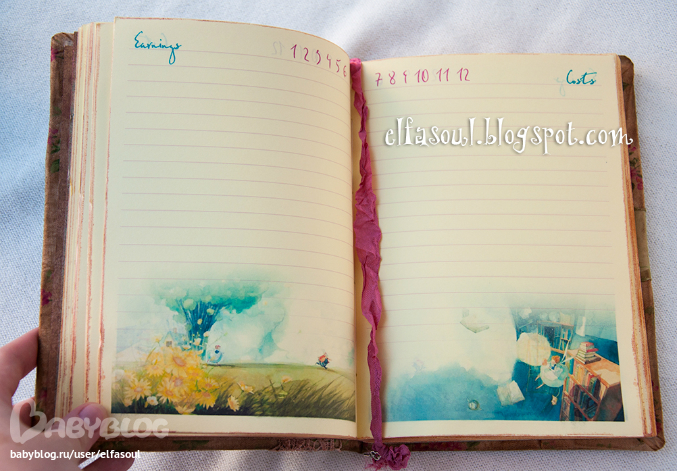 Earnings
1 2 3 4 5 6
7 8 9 10 11 12
Costs
elfasoul.blogspot.com
BABYBLOG
babyblog.ru/user/elfasoul